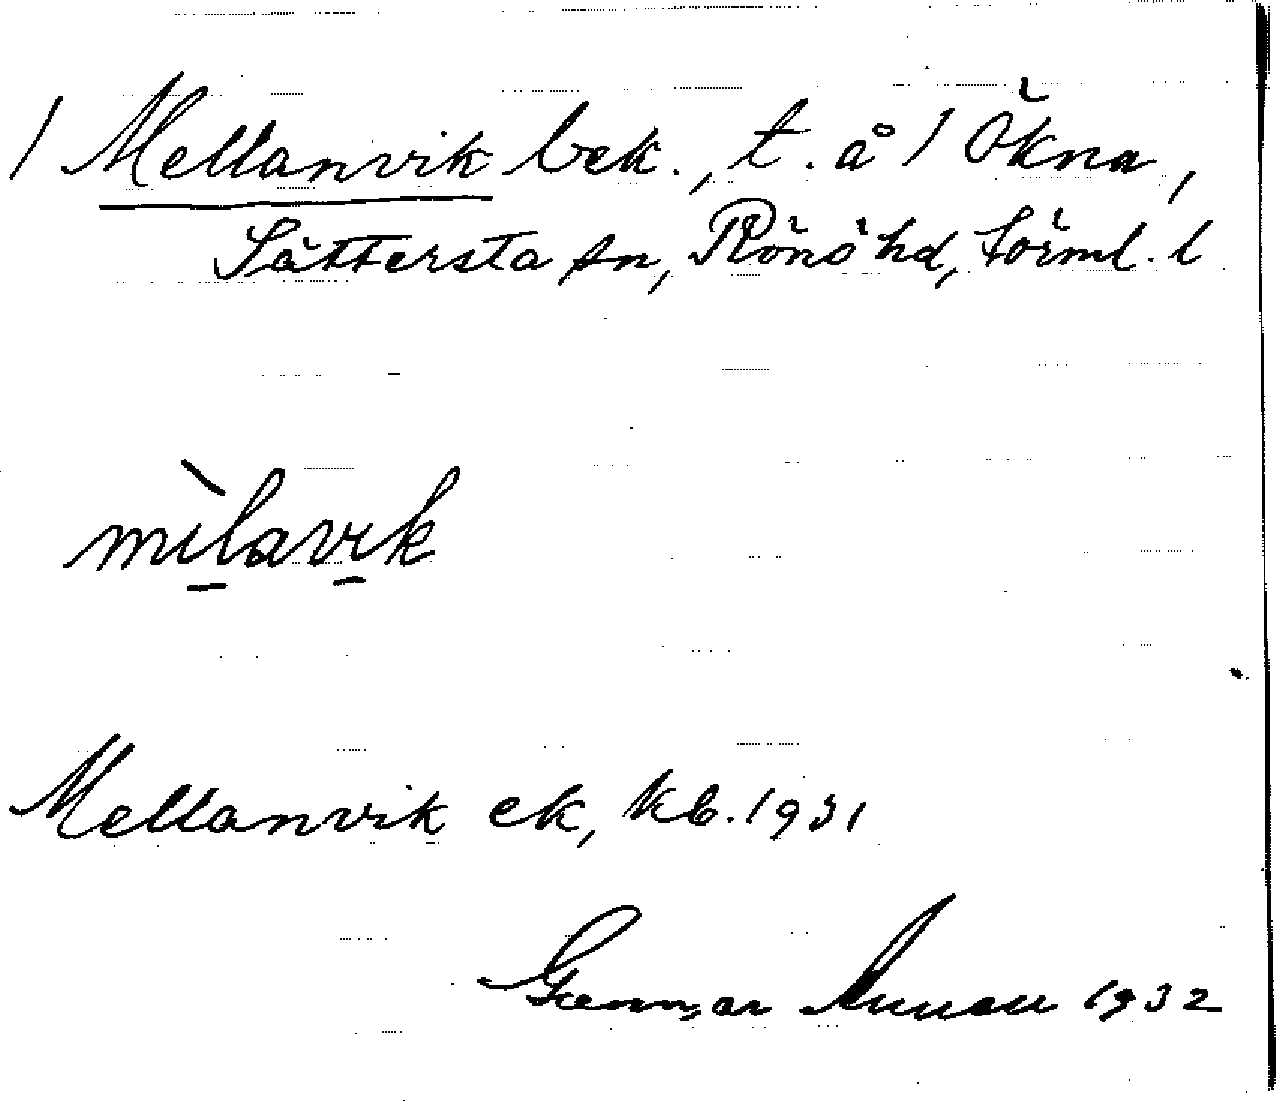 / Mellanvik bek., t. å / Ökna,
Sättersta sn, Rönö hd, Sörml. l
mìlavik
Mellanvik ek, kb. 1931
Gunnar 1932